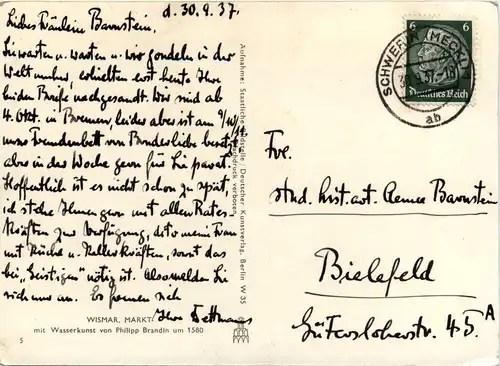 d. 30.9.37.
Liebes Fräulein Barnstein,
Sie warten u. warten u. wir gondeln in der
Welt umher, erhielten erst heute Ihre
beiden Briefe nachgesandt. Wir sind ab
4. Okt. in Bremen, leider aber ist am 9/10
unser Fremdenbett von Bundesliebe besetzt
aber in der Woche gern für Sie parat.
Hoffentlich ist es nicht schon zu spät,
ich stehe Ihnen gern mit allen Rates-
kräften zur Verfügung, dito meine Frau
mit Küche u. Kellerkräften, soweit das
bei „Geistigen" nötig ist. Also melden Sie
sich nur an. Es freuen sich
Ihre Dettmanns
WISMAR, MARKT
mit Wasserkunst von Philipp Brandin um 1580
5
Aufnahme: Staatliche Bildstelle / Deutscher Kunstverlag, Berlin W 35
Nachdruck verboten
6 6
Deutsches Reich
SCHWERIN (MECKL)
ab
Frl.
stud. hist. art. Barnstein
Bielefeld
Gütersloherstr. 45A